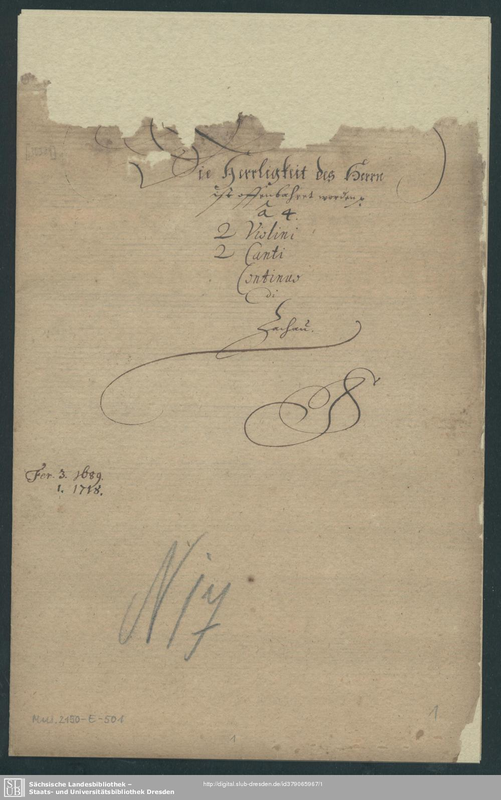 Die Herrligkeit des Herrn
ist offenbahret worden.
à 4.
2 Violini
2 Canti
Continuo
di
Zachau.
Fer. 3. 1689.
1. 1718.
Mus. 2150-E-501
1
1
SLUB
Sächsische Landesbibliothek –
Staats- und Universitätsbibliothek Dresden
http://digital.slub-dresden.de/id379065967/1